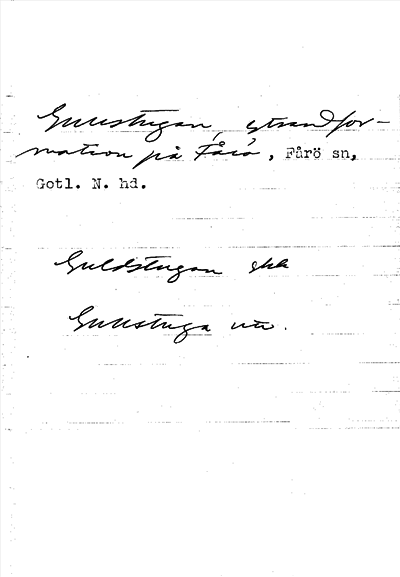 Gullstugan, strandfor-
mation på Fårö, Fårö sn,
Gotl. N. hd.
Guldstugan ekk
Gullstuga utt.